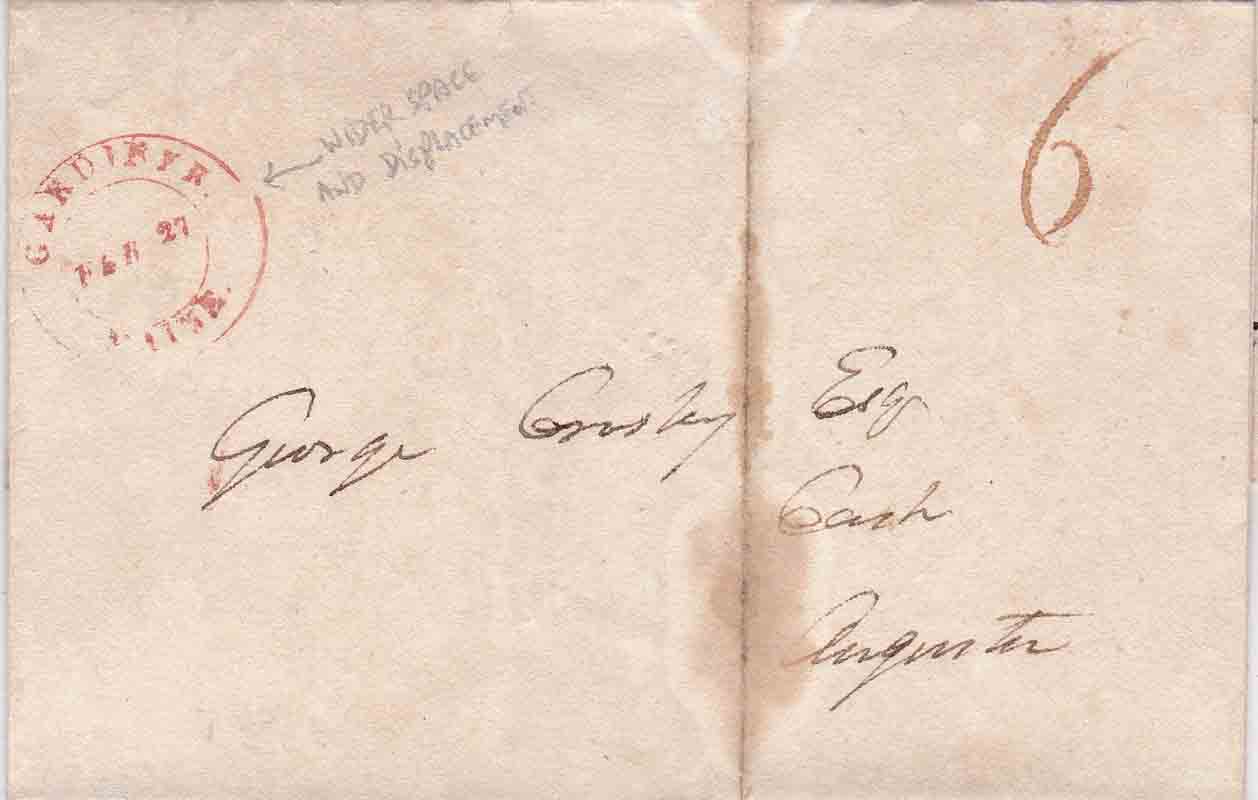 6
WIDER SPACE
AND DISPLACEMENT
GARDINER.
FEB 27
MAINE.
George Crosby Esq
Cash
Augusta